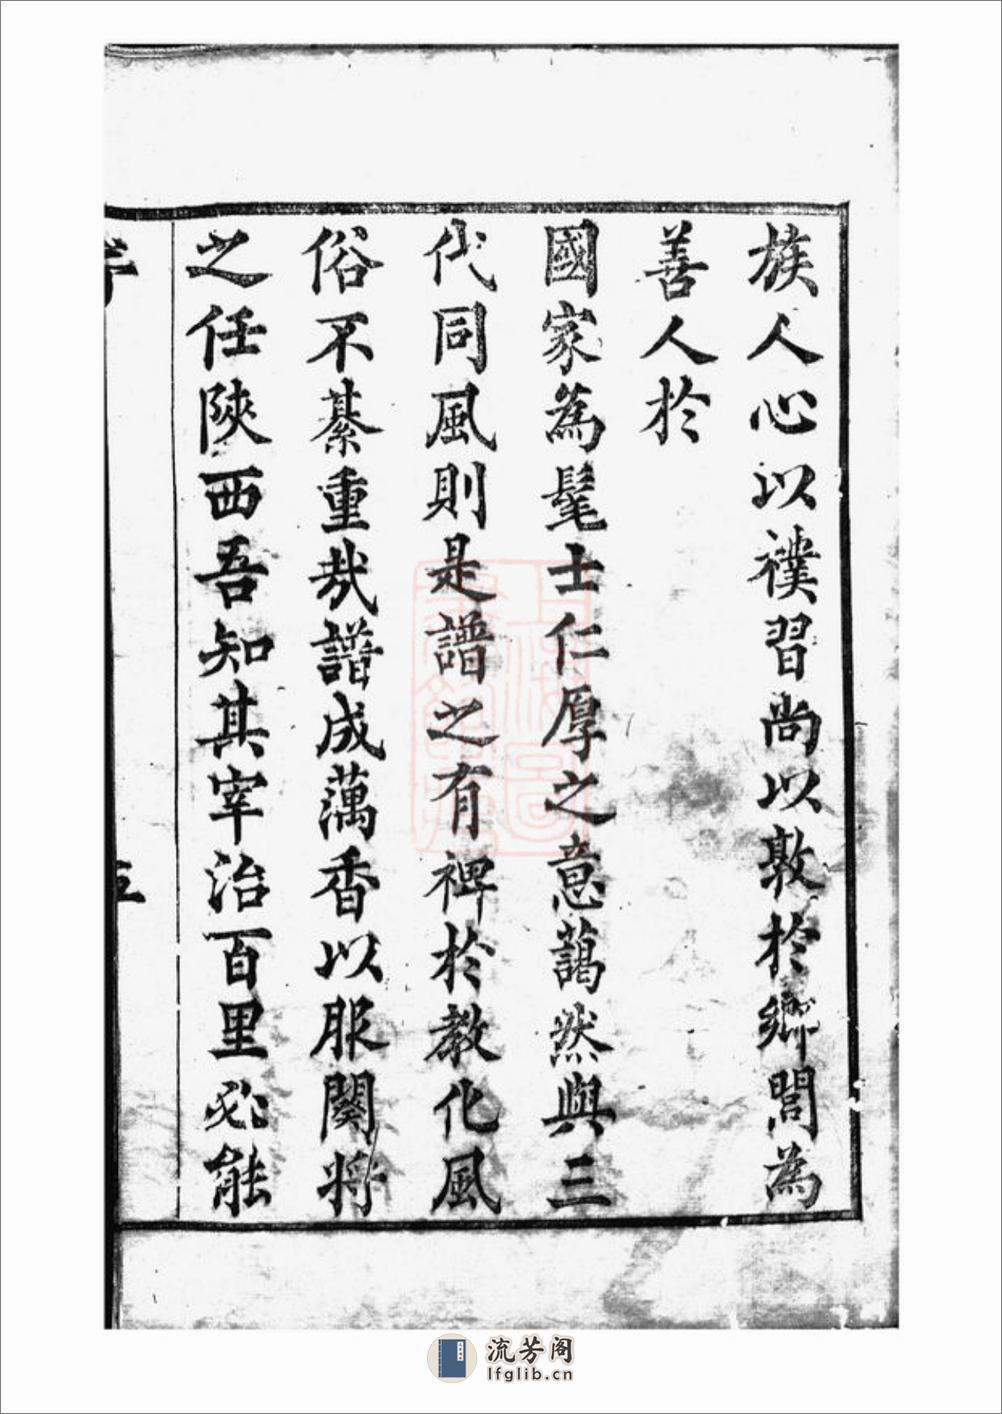 族人心以襆習尚以敦於鄉閭為
善人於
國家為髦士仁厚之意藹然與三
代同風則是譜之有裨於教化風
俗不綦重哉譜成藕香以服闋将
之任陝西吾知其宰治百里必能
序
五
流芳阁
lfglib.cn